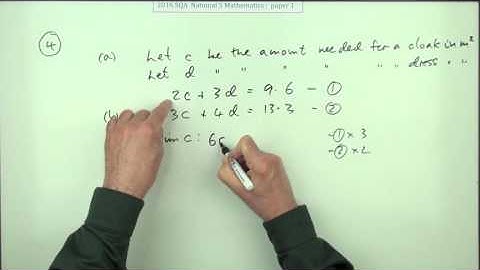 2018 SQA National 5 Mathematics: paper 1
4
(a) Let c be the amount needed for a cloak in m²
Let d " " " " " " dress " "
2c + 3d = 9.6 - 1
(b) 3c + 4d = 13.3 - 2
c: 6c - 1 × 3
- 2 × 2